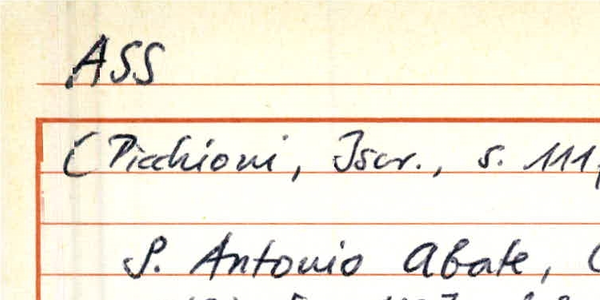 ASS
(Picchioni, Iscr., s. 111,
S. Antonio Abate, (